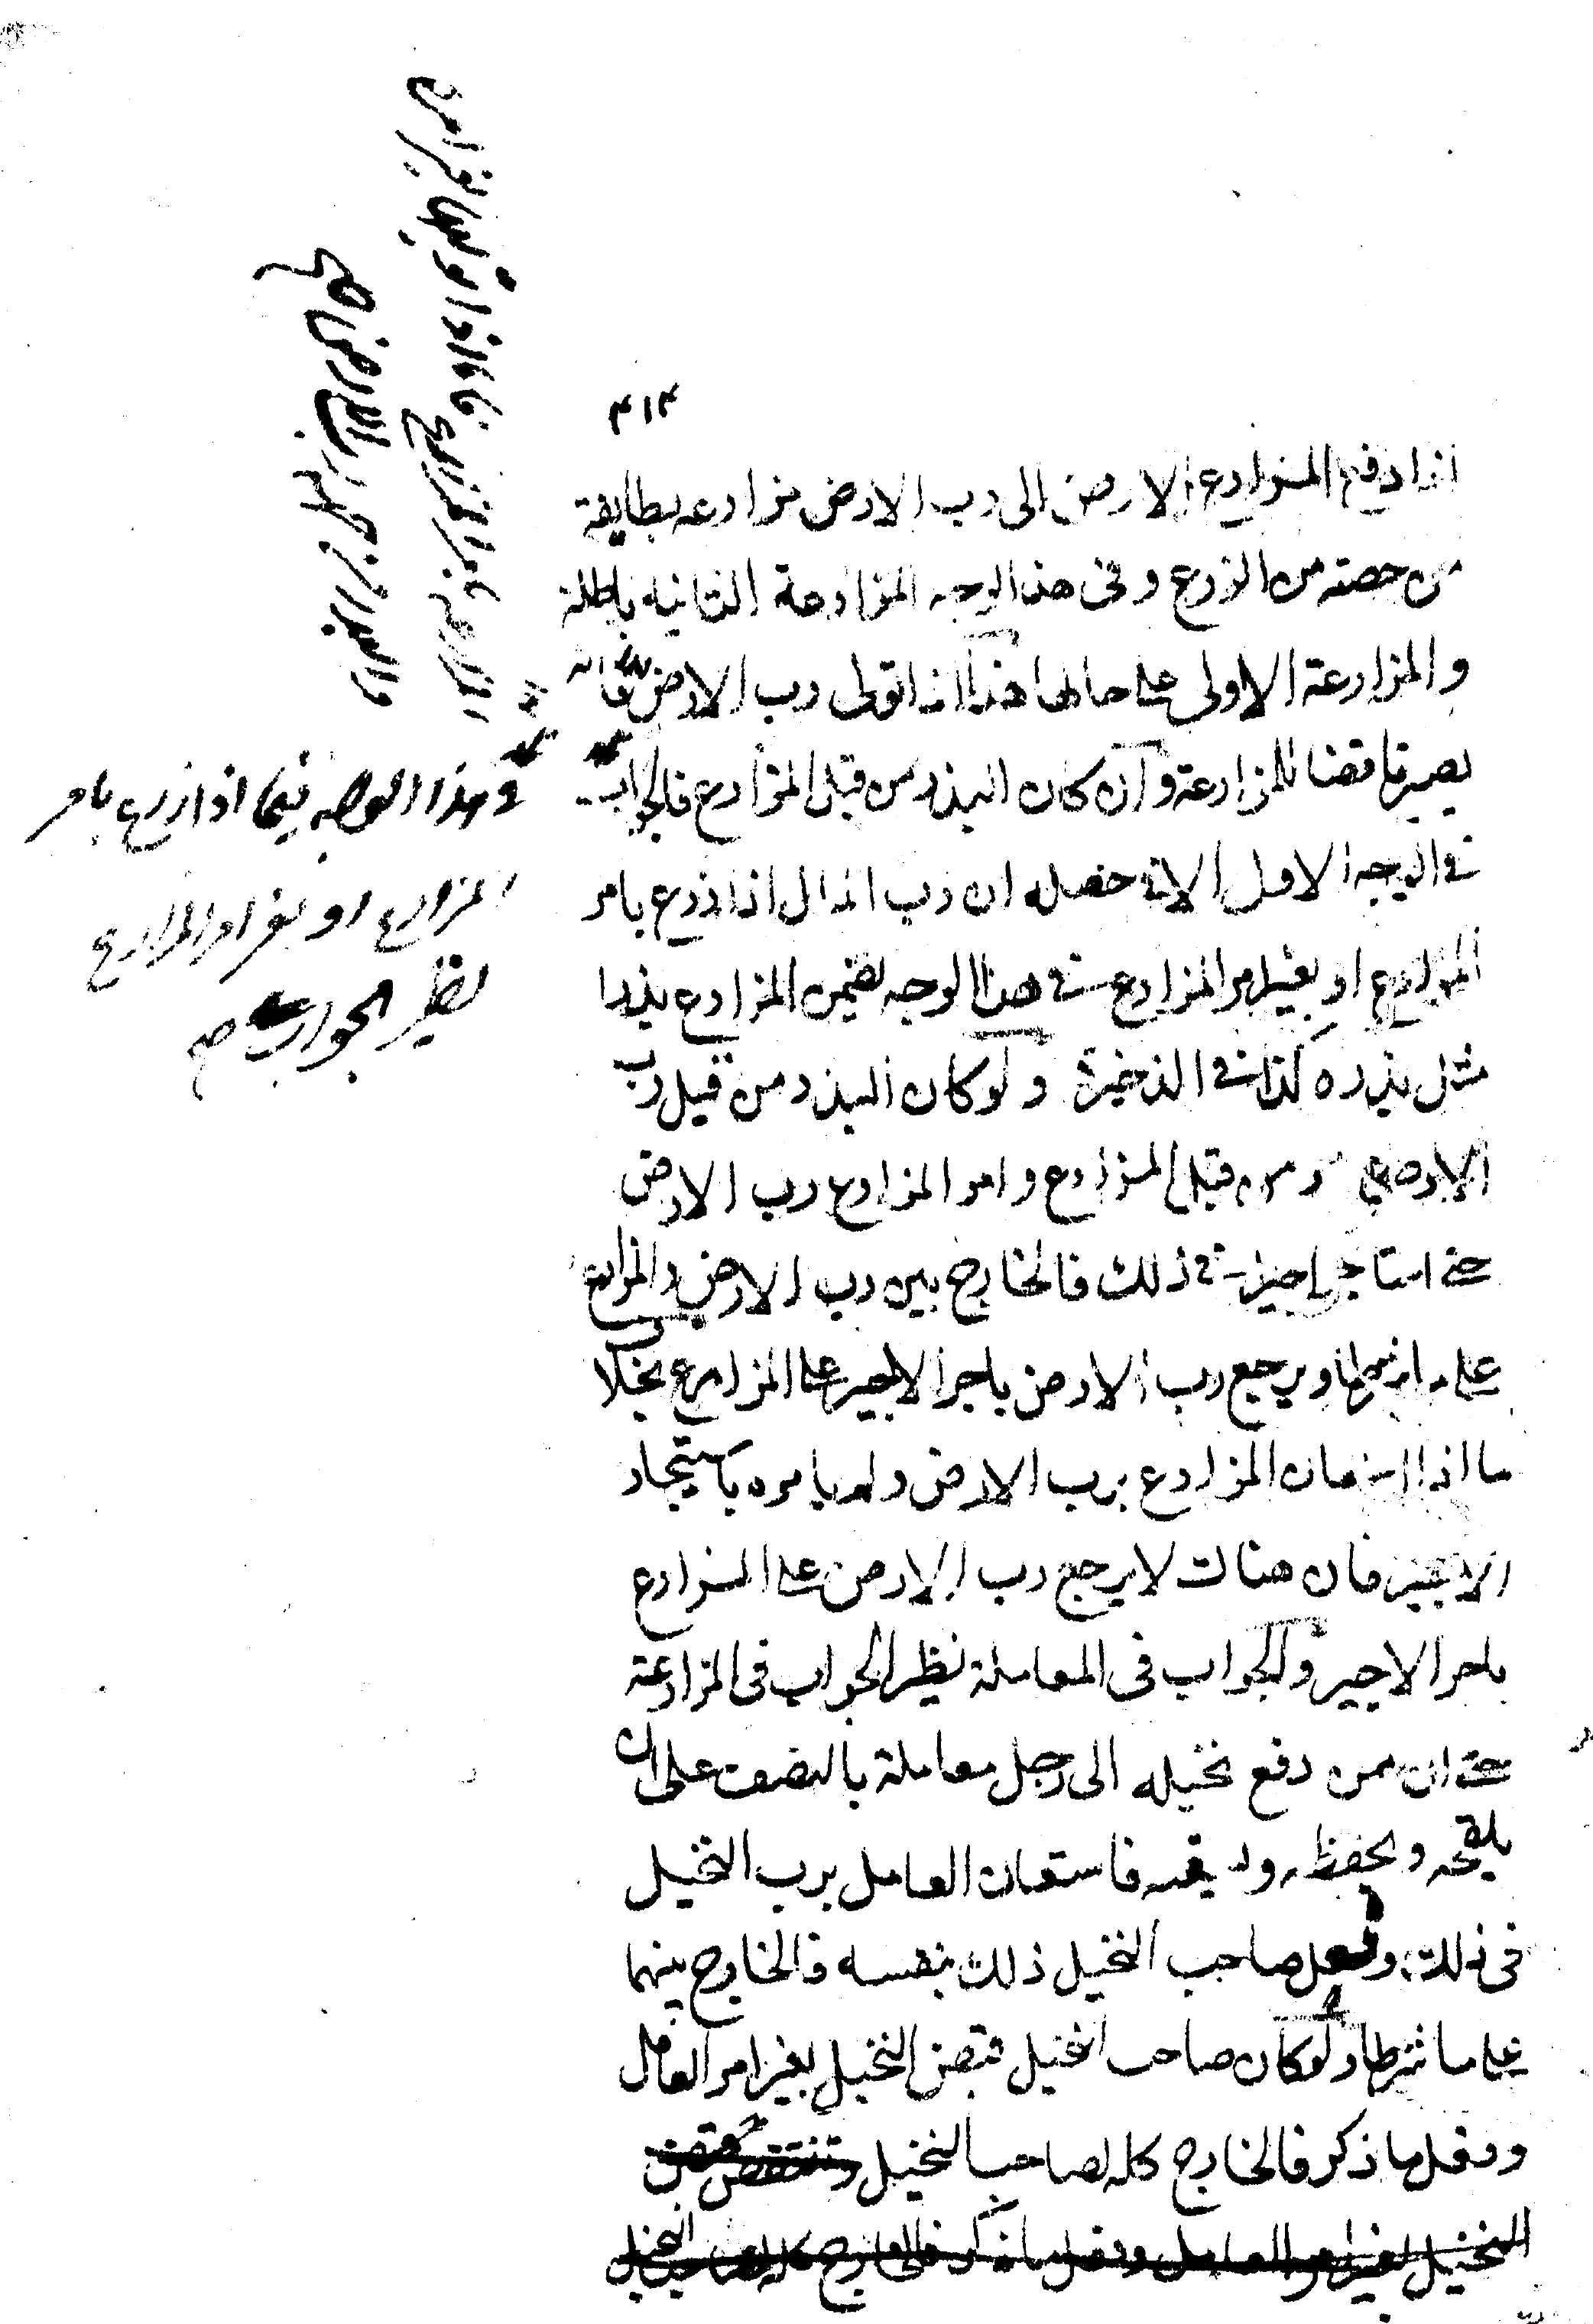 ٤١٣
اذا دفع المزارع الارض الى رب الارض مزارعه بطايفة
من حصته من الزرع وفى هذا الوجه المزارعة الثانيه باطلة
والمزارعة الاولى على حالها هذا اذا تولى رب الارض
يصير ناقضا للمزارعة وان كان البذر من قبل المزارع فالجواب
فى الوجه الاول الا فى خصلة ان رب المال اذا زرع بامر
المزارع او بغير امر المزارع فى هذا الوجه يضمن المزارع بذرا
مثل بذره كذا فى الذخيرة ولو كان البذر من قبل رب
الارض او من قبل المزارع وامر المزارع رب الارض
حتى استاجر اجيرا فى ذلك فالخارج بين رب الارض والمزارع
على ما شرطا ويرجع رب الارض باجر الاجير على المزارع بخلا
ما اذا استعان المزارع برب الارض ولم يامره باستيجار
الاجير فان هناك لا يرجع رب الارض على المزارع
باجر الاجير والجواب فى المعاملة نظير الجواب فى المزارعة
حتى ان من دفع نخيله الى رجل معاملة بالنصف على ان
يلقحه ويحفظه ويسقيه فاستعان العامل برب النخيل
فى ذلك وفعل صاحب النخيل ذلك بنفسه فالخارج بينهما
على ما شرطا ولو كان صاحب النخيل قبض النخيل بغير امر العامل
وفعل ما ذكر فالخارج كله لصاحب النخيل وتنتقض
النخيل بغير امر العامل وفعل ما ذكر فالخارج كله لصاحب النخيل
وهذا الوجه فيما اذا زرع بامر
المزارع او بغير امر المزارع
نظير الجواب صح